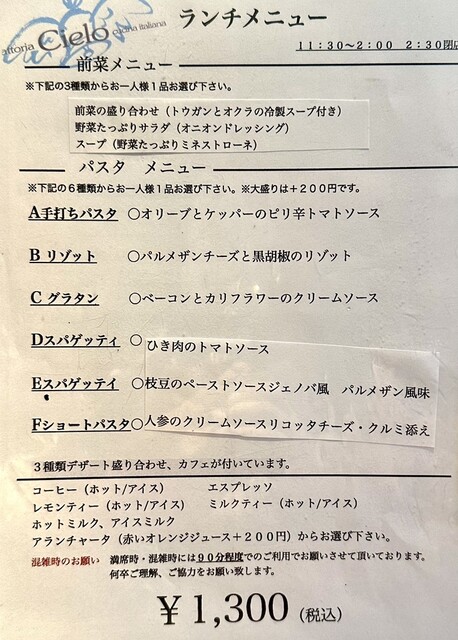 Cielo cucina italiana
ランチメニュー
11:30～2:00 2:30閉店
前菜メニュー
※下記の3種類からお一人様1品お選び下さい。
前菜の盛り合わせ（トウガンとオクラの冷製スープ付き）
野菜たっぷりサラダ（オニオンドレッシング）
スープ（野菜たっぷりミネストローネ）
パスタ メニュー
※下記の６種類からお一人様１品お選び下さい。※大盛りは＋２００円です。
A手打ちパスタ ○オリーブとケッパーのピリ辛トマトソース
B リゾット ○パルメザンチーズと黒胡椒のリゾット
C グラタン ○ベーコンとカリフラワーのクリームソース
Dスパゲッティ ○ひき肉のトマトソース
Eスパゲッテイ ○枝豆のペーストソースジェノバ風 パルメザン風味
Fショートパスタ○人参のクリームソースリコッタチーズ・クルミ添え
３種類デザート盛り合わせ、カフェが付いています。
コーヒー（ホット/アイス） エスプレッソ
レモンティー（ホット/アイス） ミルクティー（ホット/アイス）
ホットミルク、アイスミルク
アランチャータ（赤いオレンジジュース＋２００円）からお選び下さい。
混雑時のお願い 満席時・混雑時には９０分程度でのご利用でお願いさせて頂いております。
何卒ご理解、ご協力をお願い致します。
￥1,300（税込）